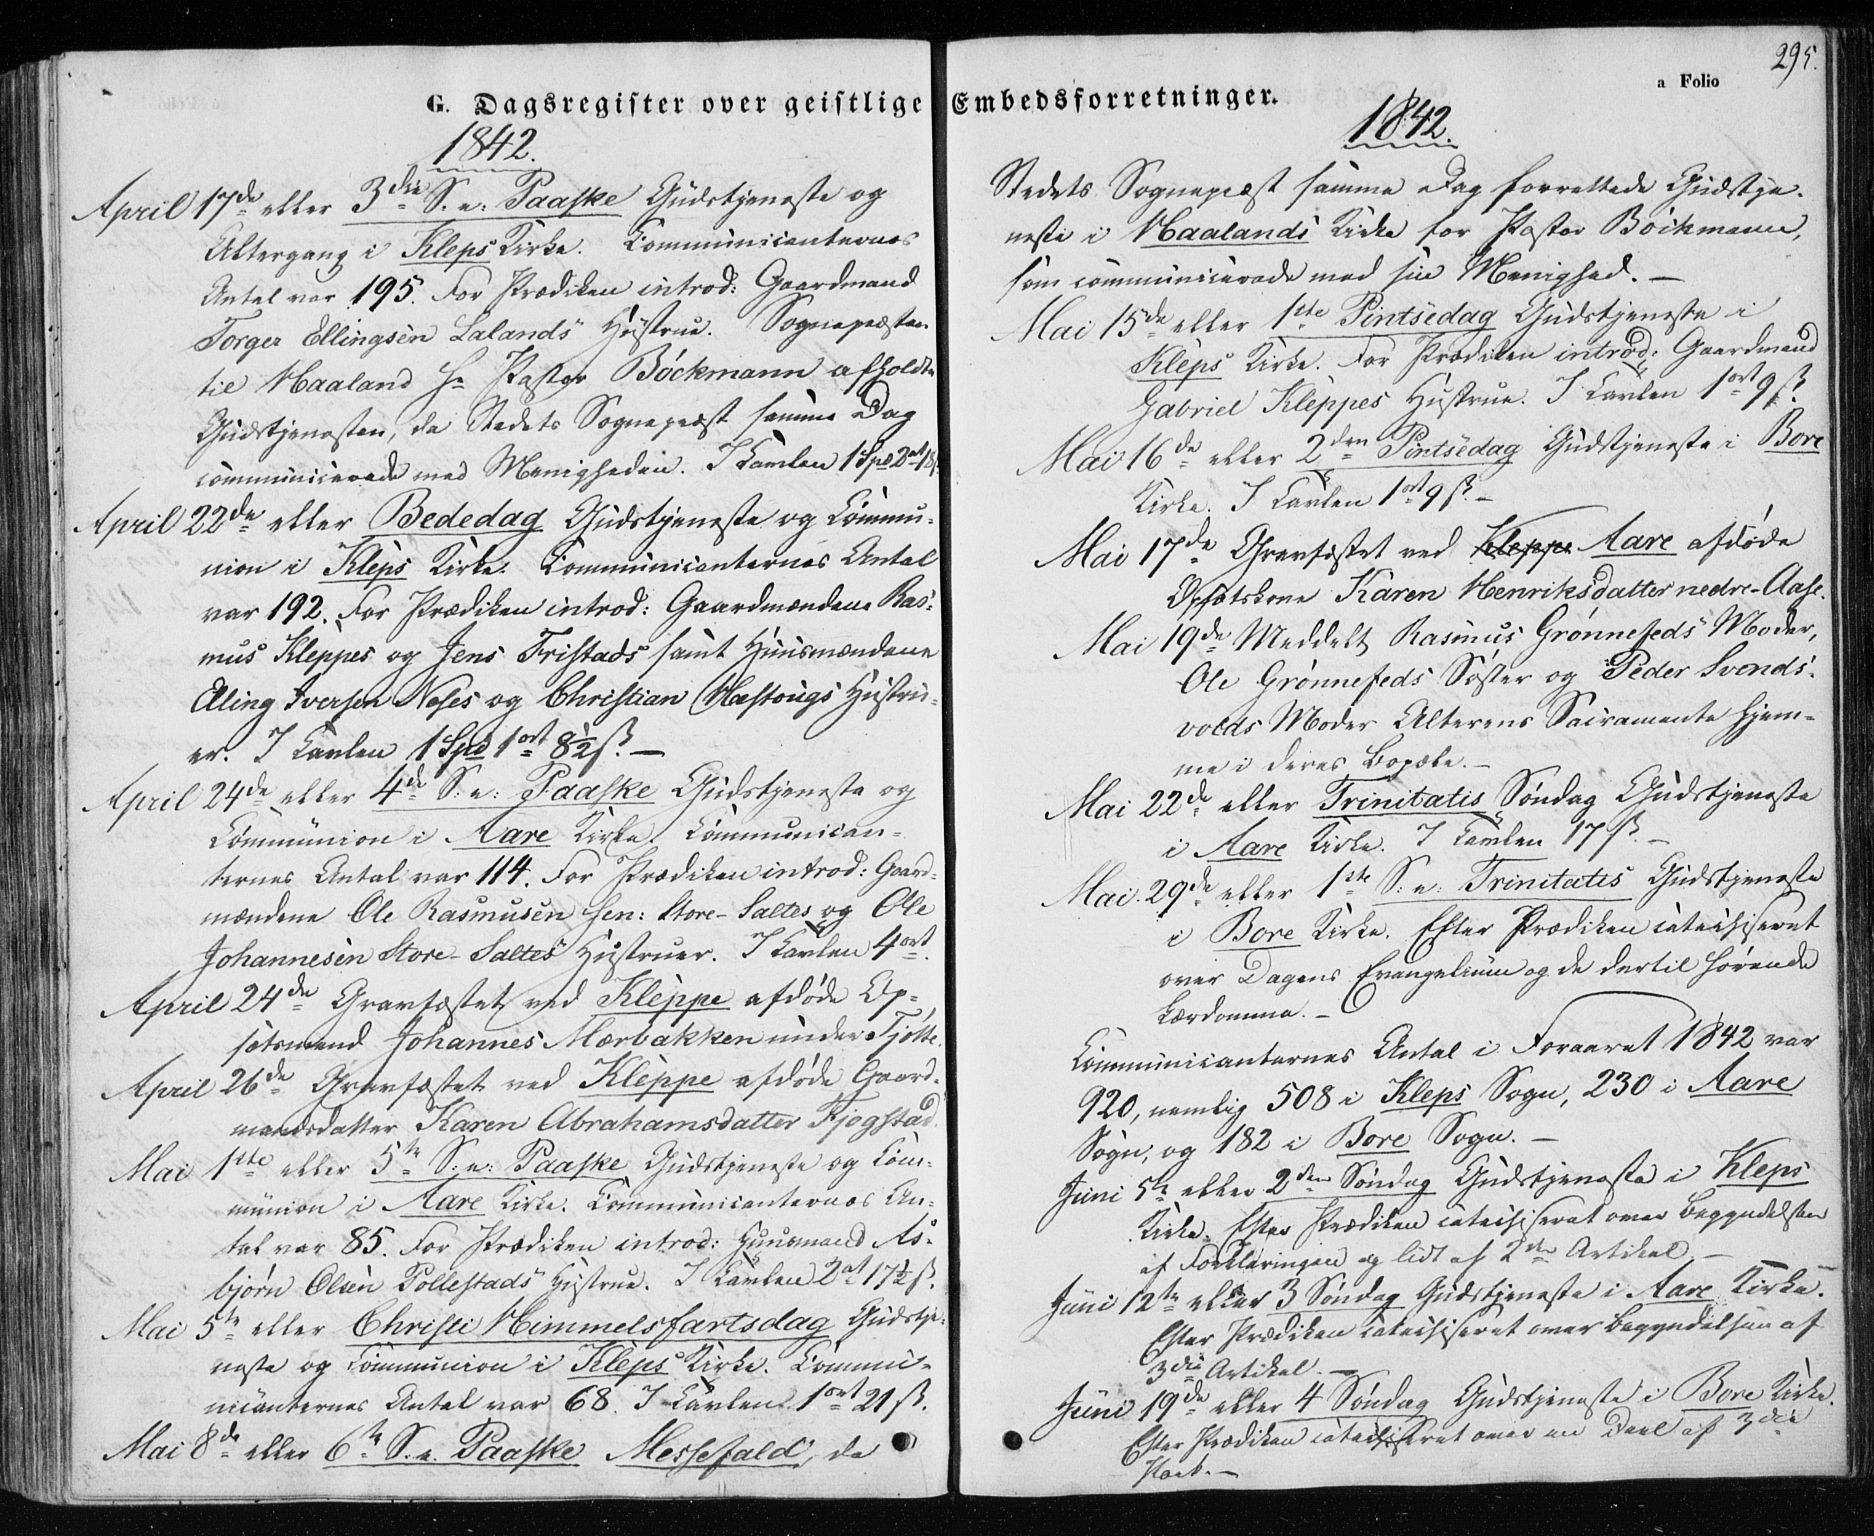 G. Dagsregister over geistlige Embedsforretninger.
a Folio
295.
1842.
April 17de eller 3die S. e: Paaske Gudstjeneste og
Altergang i Kleps Kirke. Communicanternes
Antal var 195. For Prædiken introd: Gaardmand
Torger Ellingsen Lalands Hustrue. Sognepræsten
til Haaland Hr Pastor Böckmann afholdte
Gudstjenesten, da Stedets Sognepræst samme Dag
communicerede med Menigheden. I Tavlen 1 Spd 2 ort 18 ß.
April 22de eller Bededag Gudstjeneste og Commu-
nion i Kleps Kirke. Communicanternes Antal
var 192. For Prædiken introd: Gaardmændene Ras-
mus Kleppes og Jens Tristads samt Huusmændene
Eling Iversen Neses og Christian Hestougs Hustru-
er. I Tavlen 1 Spd 1 ort 8½ ß. —
April 24de eller 4de S: e: Paaske Gudstjeneste og
Communion i Aare Kirke. Communican-
ternes Antal var 114. For Prædiken introd: Gaard-
mændene Ole Rasmusen sen: Store-Saltes og Ole
Johannesen Store-Saltes Hustruer. I Tavlen 4 ort.
April 24de Gravfæstet ved Kleppe afdøde Op-
sætsmand Johannes Mærbakken under Tjötte.
April 26de Gravfæstet ved Kleppe afdøde Gaard-
mandsdatter Karen Abrahamsdatter Fjogstad.
Mai 1ste eller 5te S: e: Paaske Gudstjeneste og Com-
munion i Aare Kirke. Communicanternes An-
tal var 85. For Prædiken introd: Huusmand As-
bjørn Olsen Pollestads Hustrue. I Tavlen 2 ort 17½ ß.
Mai 5te eller Christi Himmelsfartsdag Gudstje-
neste og Communion i Kleps Kirke. Commu-
nicanternes Antal var 68. I Tavlen 1 ort 21 ß.
Mai 8de eller 6te S. e. Paaske Messefald, da
1842.
Stedets Sognepræst samme Dag forrettede Gudstje-
neste i Haalands Kirke for Pastor Böckmann,
som communicerede med sin Menighed. —
Mai 15de eller 1ste Pintsedag Gudstjeneste i
Kleps Kirke. For Prædiken introd: Gaardmand
Gabriel Kleppes Hustrue. I Tavlen 1 ort 9 ß.
Mai 16de eller 2den Pintsedag Gudstjeneste i Bore
Kirke. I Tavlen 1 ort 9 ß. —
Mai 17de Gravfæstet ved Kleppe Aare afdøde
Opsætskone Karen Henriksdatter nedre-Aase.
Mai 19de Meddelt Rasmus Grønnefeds Moder,
Ole Grønnefeds Søster og Peder Svends-
volds Moder Alterens Sacramente hjem-
me i deres Bopæle. —
Mai 22de eller Trinitatis Søndag Gudstjeneste
i Aare Kirke. I Tavlen 17 ß. —
Mai 29de eller 1ste S: e: Trinitatis Gudstjeneste
i Bore Kirke. Efter Prædiken catechiseret
over Dagens Evangelium og de dertil hørende
Lærdomme. —
Communicanternes Antal i Foraaret 1842 var
920, nemlig 508 i Kleps Sogn, 230 i Aare
Sogn, og 182 i Bore Sogn. —
Juni 5te eller 2den Søndag Gudstjeneste i Kleps
Kirke. Efter Prædiken catechiseret over Begyndelsen
af Forklaringen og lidt af 2den Artikel. —
Juni 12te eller 3 Søndag Gudstjeneste i Aare Kirke.
Efter Prædiken catechiseret over Begyndelsen af
3die Artikel. —
Juni 19de eller 4 Søndag Gudstjeneste i Bore Kirke.
Efter Prædiken catechiseret over en Deel af 3die
Part. —